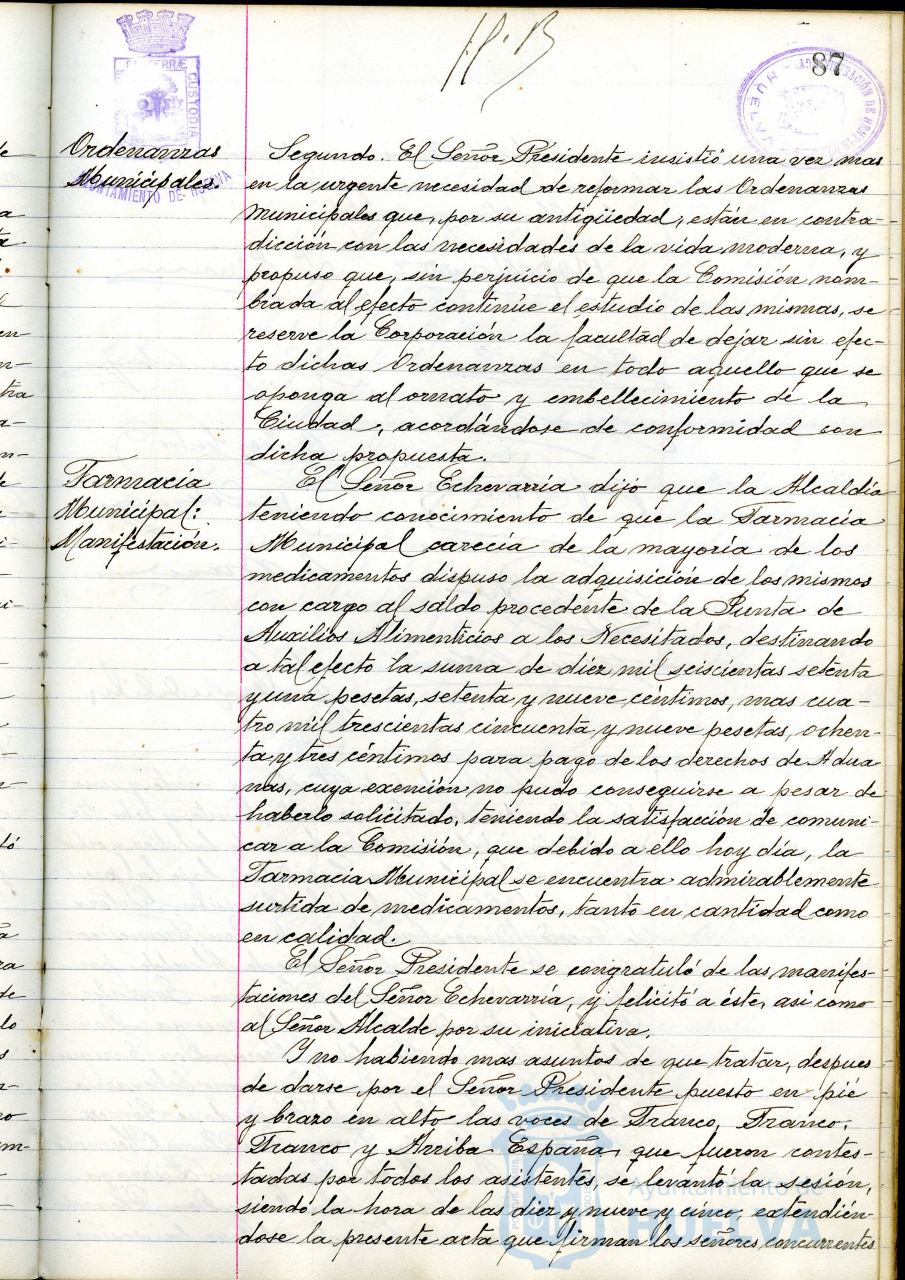 87
Ordenanzas
Municipales.
AYUNTAMIENTO DE HUELVA
CUSTODIA
Segundo. El Señor Presidente insistió una vez mas
en la urgente necesidad de reformar las Ordenanzas
Municipales que, por su antigüedad, están en contra-
dicción con las necesidades de la vida moderna, y
propuso que, sin perjuicio de que la Comisión nom-
brada al efecto continúe el estudio de las mismas, se
reserve la Corporación la facultad de dejar sin efec-
to dichas Ordenanzas en todo aquello que se
oponga al ornato y embellecimiento de la
Ciudad, acordándose de conformidad con
dicha propuesta.
Farmacia
Municipal:
Manifestación.
El Señor Echevarría dijo que la Alcaldía
teniendo conocimiento de que la Farmacia
Municipal carecía de la mayoría de los
medicamentos dispuso la adquisición de los mismos
con cargo al saldo procedente de la Junta de
Auxilios Alimenticios a los Necesitados, destinando
a tal efecto la suma de diez mil seiscientas setenta
y una pesetas, setenta y nueve céntimos, mas cua-
tro mil trescientas cincuenta y nueve pesetas, ochen-
ta y tres céntimos para pago de los derechos de Adua-
nas, cuya exención no pudo conseguirse a pesar de
haberlo solicitado, teniendo la satisfacción de comuni-
car a la Comisión, que debido a ello hoy día, la
Farmacia Municipal se encuentra admirablemente
surtida de medicamentos, tanto en cantidad como
en calidad.
El Señor Presidente se congratuló de las manifes-
taciones del Señor Echevarría, y felicitó a éste, asi como
al Señor Alcalde por su iniciativa.
Y no habiendo mas asuntos de que tratar, despues
de darse por el Señor Presidente puesto en pié
y brazo en alto las voces de Franco, Franco,
Franco y Arriba España, que fueron contes-
tadas por todos los asistentes, se levantó la sesión,
siendo la hora de las diez y nueve y cinco, extendién-
dose la presente acta que firman los señores concurrentes
Ayuntamiento de
HUELVA